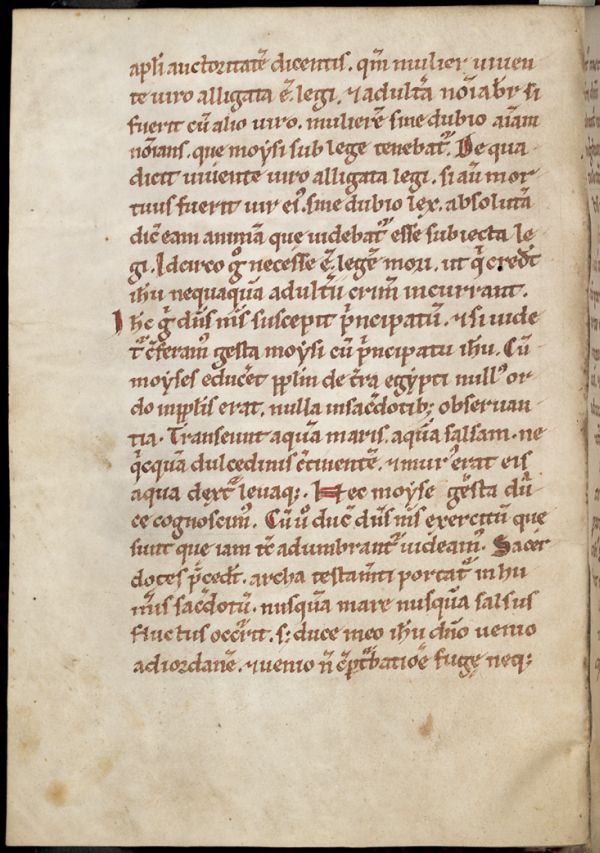 apłi auctoritatē dicentis. qm̄ mulier uiuen
te uiro alligata ē. legi. ⁊ adultā nōiabr̄ si
fuerit cū alio uiro. mulierē sine dubio aīam
nōīans. que moẏsi sub lege tenebat᷑. De qua
dicit uiuente uiro alligata legi. si aū mor
tuus fuerit uir eiꝰ. sine dubio lex. absolutā
dic̄ eam animā que uidebat᷑ esse subiecta le
gi. Idcirco g̊ necesse ē. legē mori. ut q̇ credt̄
ih̄u nequaquā adult̄ii crim̄ incurrant.
Ihc g̊ dn̄s n̄is suscepit p̄ncipatū. ⁊ si uide
t᷑ c̄feramꝰ gesta moẏsi cū p̄ncipatu ih̄u. Cū
moẏses educēt pplm̄ de t̄ra egẏpti nullꝰ or
do inpplis erat. nulla insac̄dotib; obseruan
tia. Transeunt aquā maris. aquā salsam. ne
q̇cquā dulcedinis c̄tinentē. ⁊ murꝰ erat eis
aqua dext᷑ leuaq;. Hec moẏse gesta du
ce cognoscimꝰ. Cū ů duc̄ dn̄s n̄is exercitū que
sunt que iam tc̄ adumbrant᷑ uideamꝰ. Sacer
dotes p̄cedt̄. archa testam̄ti portat᷑ in hu
m̄is sac̄dotū. nusquā mare nusquā salsus
fluctus occr̄rit. s; duce meo ih̄u dn̄o uenio
adiordanē. ⁊ uenio n̄ c̄pt᷑batiōe fugę neq;